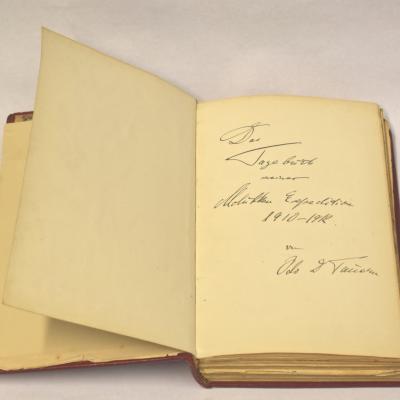 Das
Tagebuch
meiner
Molukken Expedition
1910-1912
von
Odo D Tauern